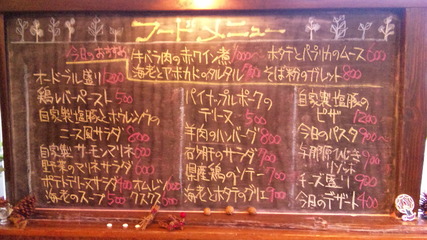 フードメニュー
今日のおすすめ
牛バラ肉の赤ワイン煮
海老とアボカドのタルタル
ホタテとパプリカのムース 600
そば粉のガレット 800
オードブル盛り 1200
鶏レバーペースト 500
自家製塩豚とホウレンソウの
ニース風サラダ 800
自家製サーモンマリネ 600
野菜のマリネサラダ 600
ポテトテリーヌサラダ
オムレツ
海老のスープ 500
クスクス
パイナップルポークの
テリーヌ 500
羊肉のハンバーグ 800
砂肝のサラダ 700
県産鶏のソテー 700
海老とホタテのグリエ 900
自家製塩豚の
ピザ 1200
今日のパスタ 900
与那原ひじき
リゾット
チーズ盛り
今日のデザート 400